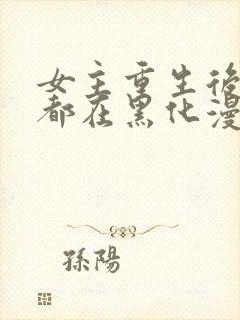 女主重生後
都在黑化漫
孫陽